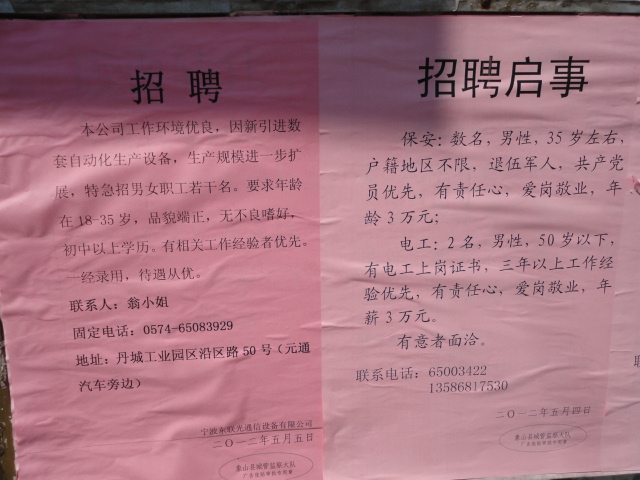 招聘
本公司工作环境优良，因新引进数
套自动化生产设备，生产规模进一步扩
展，特急招男女职工若干名。要求年龄
在18-35岁，品貌端正，无不良嗜好，
初中以上学历。有相关工作经验者优先。
一经录用，待遇从优。
联系人：翁小姐
固定电话：0574-65083929
地址：丹城工业园区沿区路50号（元通
汽车旁边）
宁波东联光通信设备有限公司
二〇一二年五月五日
象山县城管监察大队
招聘启事
保安：数名，男性，35岁左右，
户籍地区不限，退伍军人，共产党
员优先，有责任心，爱岗敬业，年
龄3万元；
电工：2名，男性，50岁以下，
有电工上岗证书，三年以上工作经
验优先，有责任心，爱岗敬业，年
薪3万元。
有意者面洽。
联系电话：65003422
13586817530
二〇一二年五月四日
象山县城管监察大队